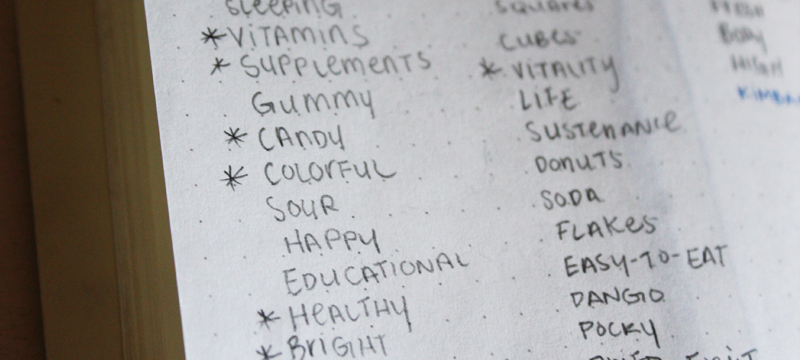 SLEEPING
* VITAMINS
* SUPPLEMENTS
GUMMY
* CANDY
* COLORFUL
SOUR
HAPPY
EDUCATIONAL
* HEALTHY
* BRIGHT
SQUARES
CUBES
* VITALITY
LIFE
SUSTENANCE
DONUTS
SODA
FLAKES
EASY-TO-EAT
DANGO
POCKY
BODY